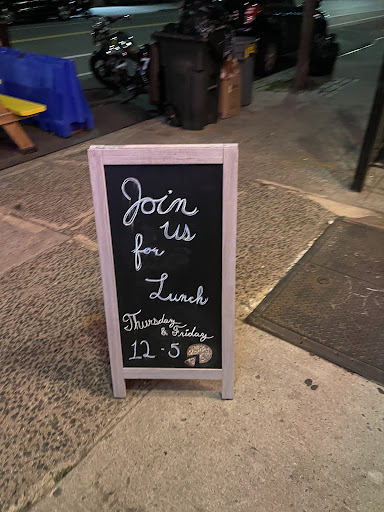 Join
us
for
Lunch
Thursday
& Friday
12 - 5